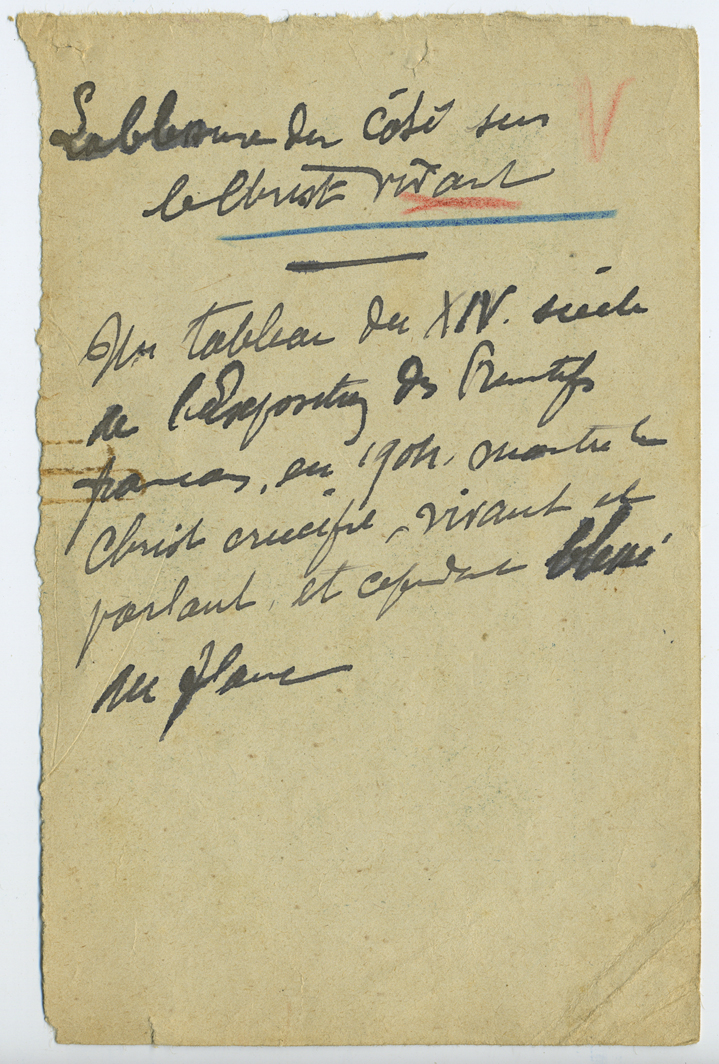 La blessure du côté sur V
le Christ vivant
Un tableau du XIV. siècle
de l'Exposition des Primitifs
français, en 1904. montre le
Christ crucifié, vivant et
parlant, et cependant blessé
au flanc